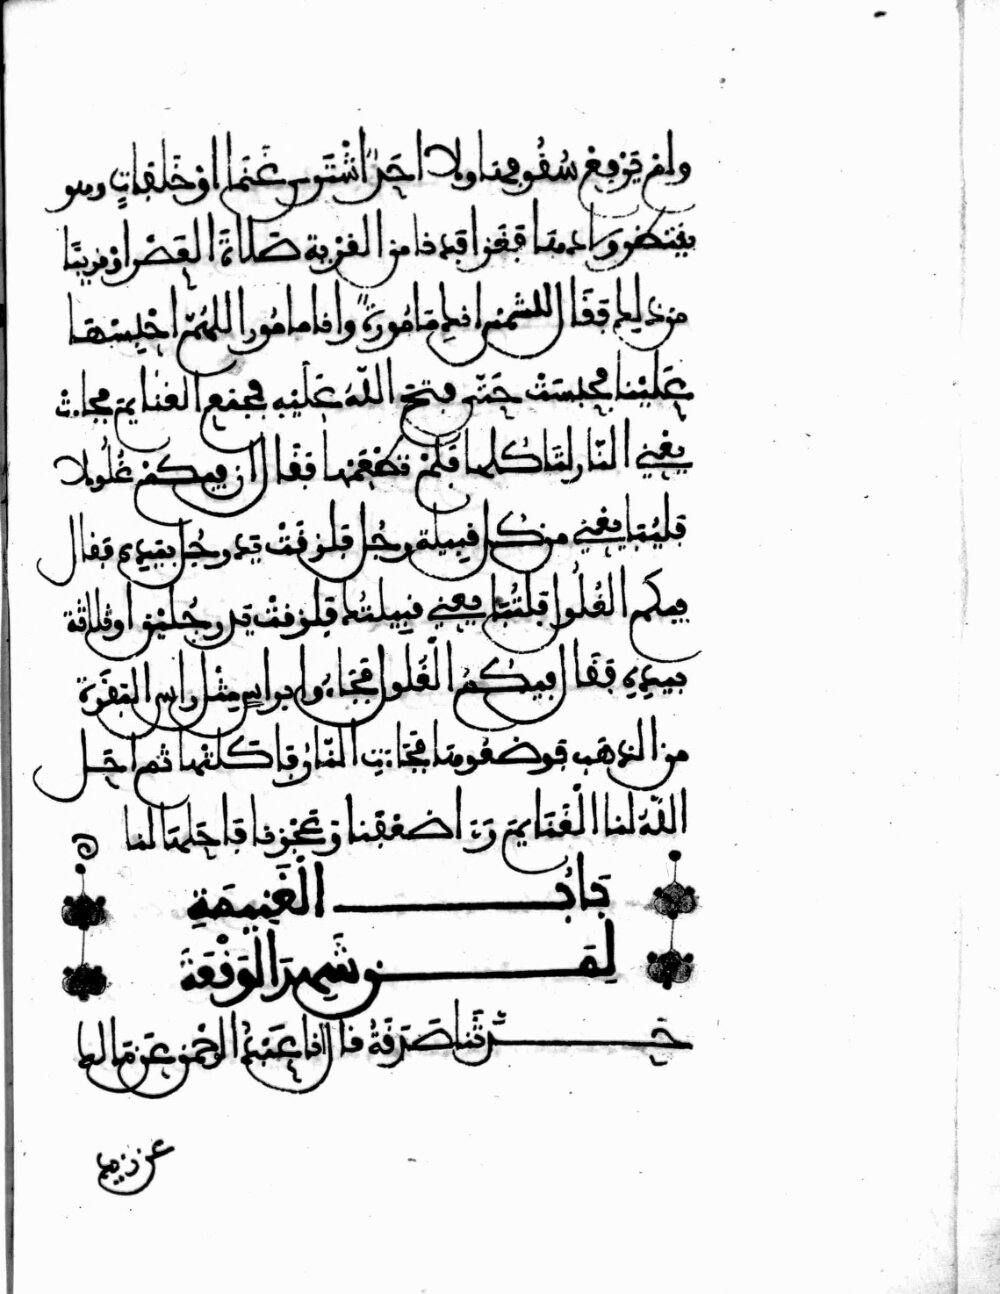 ولم يرفع سقوفها ولا احد اشترى غنما او خلفات وهو
ينتظر ولادها فغزا فدنا من القرية صلاة العصر او قريبا
من ذلك فقال للشمس انك مامورة وانا مامور اللهم احبسها
علينا فحبست حتى فتح الله عليه فجمع الغنايم فجاءت
يعني النار لتاكلها فلم تطعمها فقال ان فيكم غلولا
فليبايعني من كل قبيلة رجل فلزقت يد رجل بيده فقال
فيكم الغلول فلتبايعني قبيلتك فلزقت يد رجلين او ثلاثة
بيده فقال فيكم الغلول فجاءوا براس مثل راس البقرة
من الذهب فوضعوها فجاءت النار فاكلتها ثم احل
الله لنا الغنايم رءا ضعفنا وعجزنا فاحلها لنا
بَابُ الْغَنِيمَةِ
لِمَن شَهِدَ الْوَقْعَةَ
حدثنا صدقة قال انا عبد الرحمن عن مالك
عن زيد